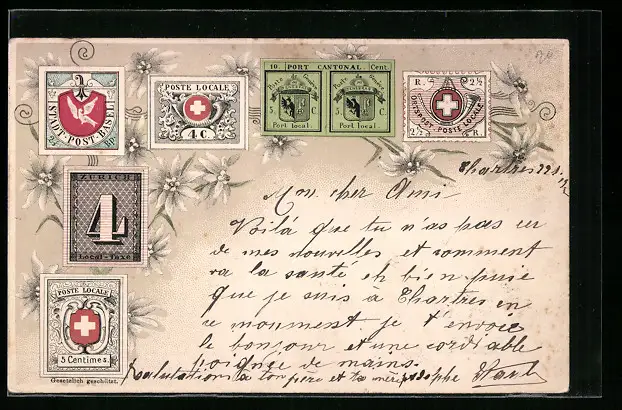 STADT-POST-BASEL
POSTE LOCALE
4 C.
10. PORT CANTONAL. Cent.
Poste Genève
5 C.
Port local.
Poste Genève
5 C.
Port local.
R. 2½
ORTSPOST. POSTE LOCALE
2½ R.
ZURICH
4
Local-Taxe
POSTE LOCALE
5 Centimes.
Gesetzlich geschützt.
Chartres 22
Mon cher Ami
Voilà que tu n'as pas eu
de mes nouvelles et comment
va la santé eh bien puie
que je suis à Chartres en
ce moument je t'envoie
le bonjour et une cordiable
poignée de mains.
Salutations à ton père et ta mère